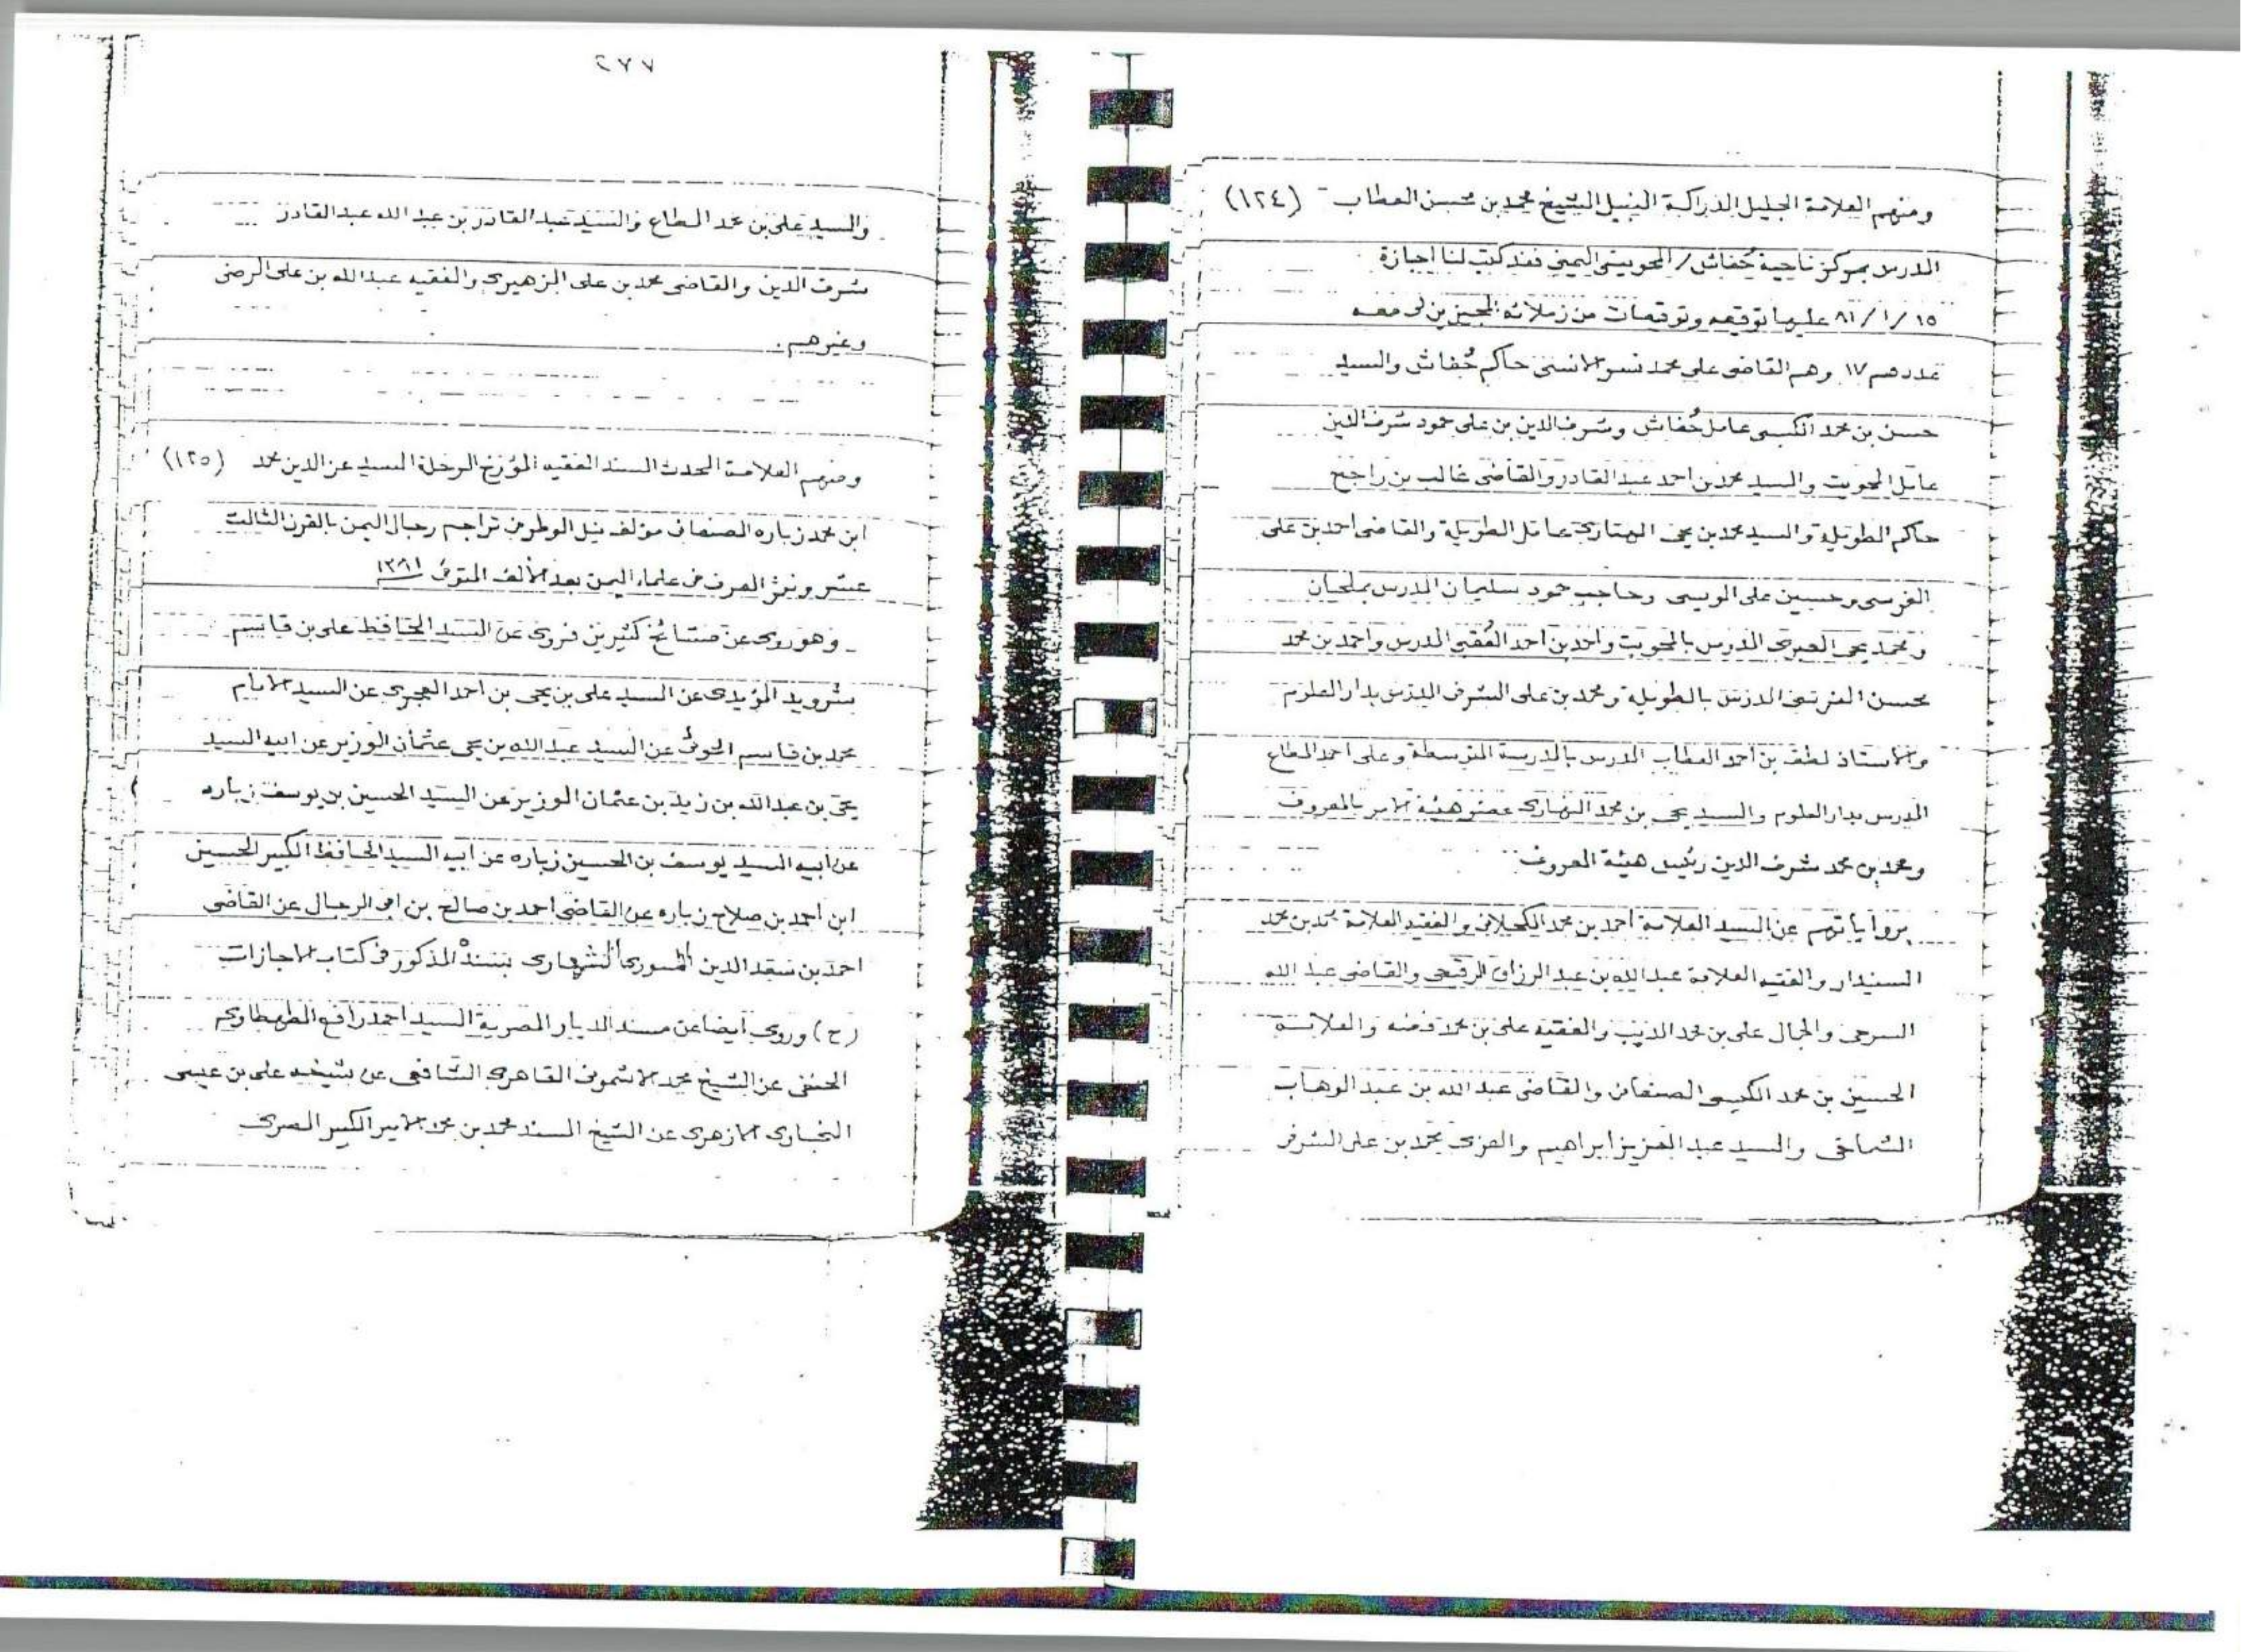 ومنهم العلامة الجليل الدراكة النبيل الشيخ محمد بن محسن العطاب (١٢٤)
المدرس بمركز ناحية خُفاش / المحويت اليمن فقد كتب لنا اجازة
١٥ / ١ / ٨١ عليها توقيعه وتوقيعات من زملائه المجيزين لى معه
عددهم ١٧ وهم القاضى على محمد الانسى حاكم خُفاش والسيد
حسن بن محمد الكبسى عامل خُفاش وشرف الدين بن على حمود شرف الدين
عامل المحويت والسيد محمد بن احمد عبد القادر والقاضى غالب بن راجح
حاكم الطويلة والسيد محمد بن يحيى عامل الطويلة والقاضى احمد بن على
وحسين على الويسى وحاجب حمود سليمان المدرس بملحان
و محمد يحيى المدرس بالمحويت واحمد بن احمد المدرس واحمد بن محمد
محسن المدرس بالطويلة ومحمد بن على الشرفى المدرس بدار العلوم
والاستاذ لطف بن احمد العطاب المدرس بالمدرسة المتوسطة وعلى احمد المطاع
المدرس بدار العلوم والسيد يحيى بن محمد النهارى عضو هيئة الامر بالمعروف
ومحمد بن محمد شرف الدين رئيس هيئة المعروف
برواياتهم عن السيد العلامة احمد بن محمد الكحلانى والفقيه العلامة محمد بن محمد
السنيدار والفقيه العلامة عبد الله بن عبد الرزاق الرقيحى والقاضى عبد الله
السرحى والجمال على بن محمد الديب والفقيه على بن محمد فضه والعلامة
الحسين بن محمد الكبسى الصنعانى والقاضى عبد الله بن عبد الوهاب
الشماحى والسيد عبد العزيز ابراهيم والعزى محمد بن على الشرفى
٢٧٧
والسيد على بن محمد المطاع والسيد عبد القادر بن عبد الله عبد القادر
شرف الدين والقاضى محمد بن على الزهيرى والفقيه عبد الله بن على الرضى
وغيرهم .
ومنهم العلامة المحدث المسند الفقيه المؤرخ الرحلة السيد عز الدين محمد (١٢٥)
ابن محمد زباره الصنعانى مؤلف نيل الوطر فى تراجم رجال اليمن بالقرن الثالث
عشر ونشر العرف فى علماء اليمن بعد الألف المتوفى ١٣٨١
وهو روى عن مشائخ كثيرين فروى عن السيد الحافظ على بن قاسم
شرويد المؤيدى عن السيد على بن يحيى بن احمد العجرى عن السيد الامام
محمد بن قاسم الحوثى عن السيد عبد الله بن يحيى عثمان الوزير عن ابيه السيد
يحيى بن عبد الله بن زيد بن عثمان الوزير عن السيد الحسين بن يوسف زباره
عن ابيه السيد يوسف بن الحسين زباره عن ابيه السيد الحافظ الكبير الحسين
ابن احمد بن صلاح زباره عن القاضى احمد بن صالح بن ابى الرجال عن القاضى
احمد بن سعد الدين المسورى الشهارى بسنده المذكور فى كتاب الاجازات
(ح) وروى ايضا عن مسند الديار المصرية السيد احمد رافع الطهطاوى
الحنفى عن الشيخ محمد الاشمونى القاهرى الشافعى عن شيخه على بن عيسى
النجارى الازهرى عن الشيخ المسند محمد بن محمد الامير الكبير المصرى